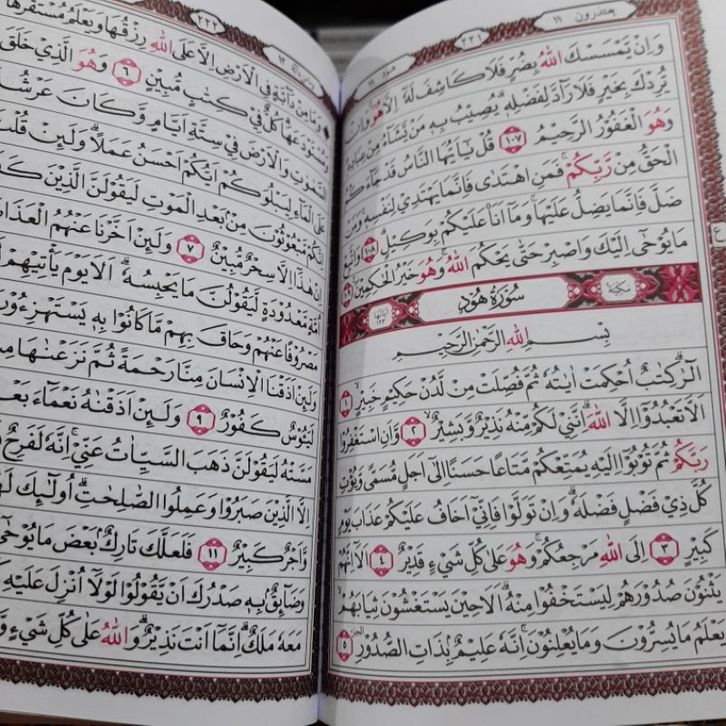 يعتذرون ١١
٢٢١
وَاِنْ يَمْسَسْكَ اللهُ بِضُرٍّ فَلَا كَاشِفَ لَهٗٓ اِلَّا هُوَ ۚ وَاِنْ
يُّرِدْكَ بِخَيْرٍ فَلَا رَاۤدَّ لِفَضْلِهٖۗ يُصِيْبُ بِهٖ مَنْ يَّشَاۤءُ مِنْ عِبَادِهٖ
وَهُوَ الْغَفُوْرُ الرَّحِيْمُ ١٠٧ قُلْ يٰٓاَيُّهَا النَّاسُ قَدْ جَاۤءَكُمُ
الْحَقُّ مِنْ رَّبِّكُمْ ۚ فَمَنِ اهْتَدٰى فَاِنَّمَا يَهْتَدِيْ لِنَفْسِهٖ وَمَنْ
ضَلَّ فَاِنَّمَا يَضِلُّ عَلَيْهَا ۚ وَمَآ اَنَا۠ عَلَيْكُمْ بِوَكِيْلٍۗ ١٠٨ وَاتَّبِعْ
مَا يُوْحٰٓى اِلَيْكَ وَاصْبِرْ حَتّٰى يَحْكُمَ اللهُ وَهُوَ خَيْرُ الْحٰكِمِيْنَ ١٠٩
مكية سُوْرَةُ هُوْدٍ اٰياتها ١٢٣
بِسْمِ اللهِ الرَّحْمٰنِ الرَّحِيْمِ
الۤرٰ ۗ كِتٰبٌ اُحْكِمَتْ اٰيٰتُهٗ ثُمَّ فُصِّلَتْ مِنْ لَّدُنْ حَكِيْمٍ خَبِيْرٍۙ ١
اَلَّا تَعْبُدُوْٓا اِلَّا اللهَ ۗ اِنَّنِيْ لَكُمْ مِّنْهُ نَذِيْرٌ وَّبَشِيْرٌۙ ٢ وَاَنِ اسْتَغْفِرُوْا
رَبَّكُمْ ثُمَّ تُوْبُوْٓا اِلَيْهِ يُمَتِّعْكُمْ مَّتَاعًا حَسَنًا اِلٰٓى اَجَلٍ مُّسَمًّى وَّيُؤْتِ
كُلَّ ذِيْ فَضْلٍ فَضْلَهٗ ۗ وَاِنْ تَوَلَّوْا فَاِنِّيْٓ اَخَافُ عَلَيْكُمْ عَذَابَ يَوْمٍ
كَبِيْرٍ ٣ اِلَى اللهِ مَرْجِعُكُمْ ۚ وَهُوَ عَلٰى كُلِّ شَيْءٍ قَدِيْرٌ ٤ اَلَآ اِنَّهُمْ
يَثْنُوْنَ صُدُوْرَهُمْ لِيَسْتَخْفُوْا مِنْهُ ۗ اَلَا حِيْنَ يَسْتَغْشُوْنَ ثِيَابَهُمْ ۙ
يَعْلَمُ مَا يُسِرُّوْنَ وَمَا يُعْلِنُوْنَ ۚ اِنَّهٗ عَلِيْمٌ ۢ بِذَاتِ الصُّدُوْرِ ٥
٢٢٢
وَمَا مِنْ دَاۤبَّةٍ فِى الْاَرْضِ اِلَّا عَلَى اللهِ رِزْقُهَا وَيَعْلَمُ مُسْتَقَرَّهَا
وَمُسْتَوْدَعَهَا ۗ كُلٌّ فِيْ كِتٰبٍ مُّبِيْنٍ ٦ وَهُوَ الَّذِيْ خَلَقَ
السَّمٰوٰتِ وَالْاَرْضَ فِيْ سِتَّةِ اَيَّامٍ وَّكَانَ عَرْشُهٗ
عَلَى الْمَاۤءِ لِيَبْلُوَكُمْ اَيُّكُمْ اَحْسَنُ عَمَلًا ۗ وَلَىِٕنْ قُلْتَ
اِنَّكُمْ مَّبْعُوْثُوْنَ مِنْ ۢ بَعْدِ الْمَوْتِ لَيَقُوْلَنَّ الَّذِيْنَ
اِنْ هٰذَآ اِلَّا سِحْرٌ مُّبِيْنٌ ٧ وَلَىِٕنْ اَخَّرْنَا عَنْهُمُ الْعَذَابَ
اُمَّةٍ مَّعْدُوْدَةٍ لَّيَقُوْلُنَّ مَا يَحْبِسُهٗ ۗ اَلَا يَوْمَ يَأْتِيْهِمْ
مَصْرُوْفًا عَنْهُمْ وَحَاقَ بِهِمْ مَّا كَانُوْا بِهٖ يَسْتَهْزِءُوْنَ
وَلَىِٕنْ اَذَقْنَا الْاِنْسَانَ مِنَّا رَحْمَةً ثُمَّ نَزَعْنٰهَا مِنْهُ
لَيَـُٔوْسٌ كَفُوْرٌ ٩ وَلَىِٕنْ اَذَقْنٰهُ نَعْمَاۤءَ بَعْدَ
مَسَّتْهُ لَيَقُوْلَنَّ ذَهَبَ السَّيِّاٰتُ عَنِّيْ ۗ اِنَّهٗ لَفَرِحٌ
اِلَّا الَّذِيْنَ صَبَرُوْا وَعَمِلُوا الصّٰلِحٰتِۗ اُولٰۤىِٕكَ لَهُمْ
وَّاَجْرٌ كَبِيْرٌ ١١ فَلَعَلَّكَ تَارِكٌ ۢ بَعْضَ مَا يُوْحٰٓى
وَضَاۤىِٕقٌ ۢ بِهٖ صَدْرُكَ اَنْ يَّقُوْلُوْا لَوْلَآ اُنْزِلَ عَلَيْهِ
مَعَهٗ مَلَكٌ ۗ اِنَّمَآ اَنْتَ نَذِيْرٌ ۗ وَاللهُ عَلٰى كُلِّ شَيْءٍ